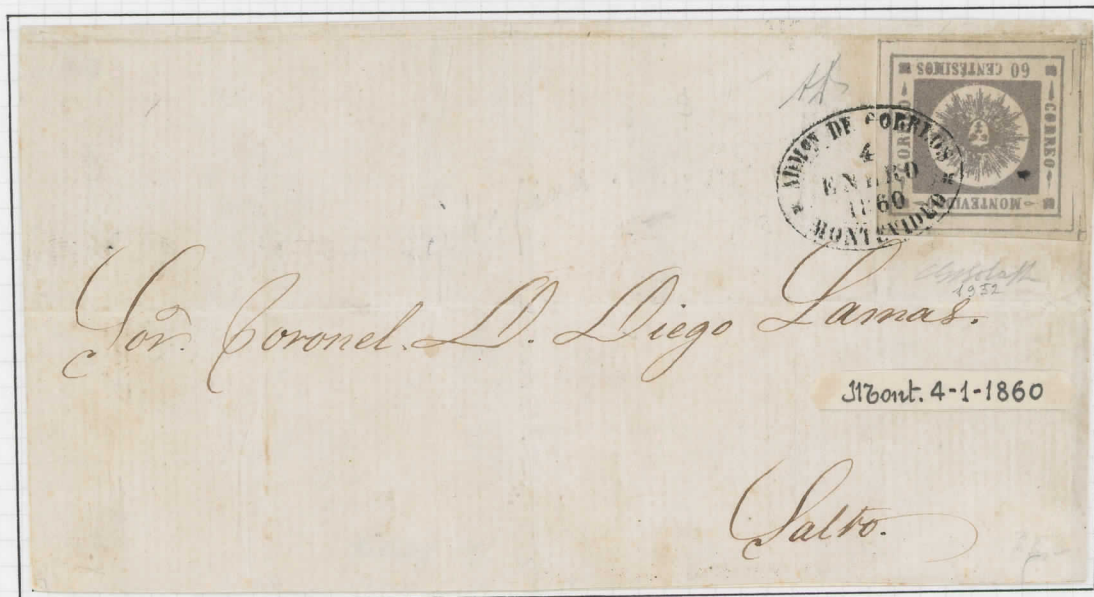 60 CENTÉSIMOS
CORREO
CORREO
MONTEVIDEO
ADMON. DE CORREOS
4
ENERO
1860
MONTEVIDEO
1932
Sor. Coronel. D. Diego Lamas.
Mont. 4-1-1860
Salto.